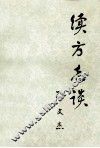 续方志谈
文杰